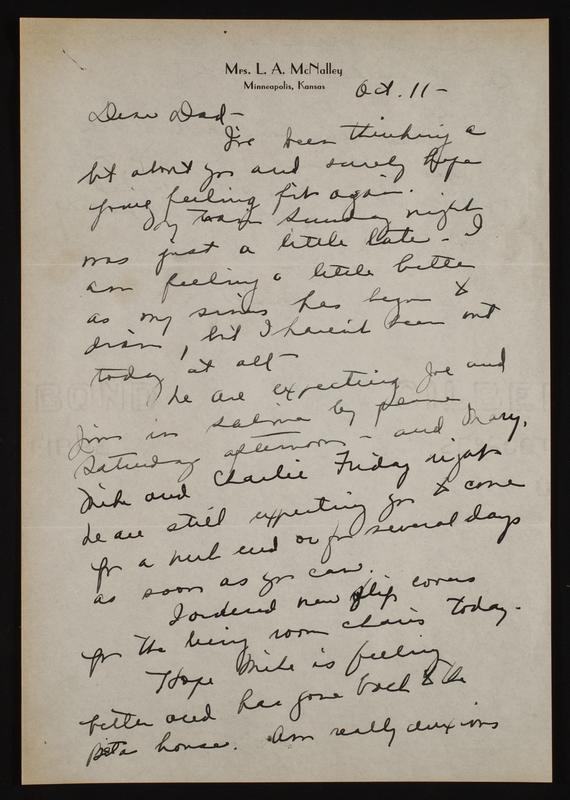 Mrs. L. A. McNalley
Minneapolis, Kansas
Oct. 11 -
Dear Dad -
I've been thinking a
bit about you and surely hope
you're feeling fit again.
My train Sunday night
was just a little late - I
am feeling a little better
as my sinus has begun to
drain, but I haven't been out
today at all -
We are expecting Joe and
Jim in Salina by plane
Saturday afternoon - and Mary,
Mike and Charlie Friday night
We are still expecting you to come
for a week end or for several days
as soon as you can.
I ordered new slip covers
for the living room chairs today.
Hope Mike is feeling
better and has gone back to the
Beta house. Am really anxious